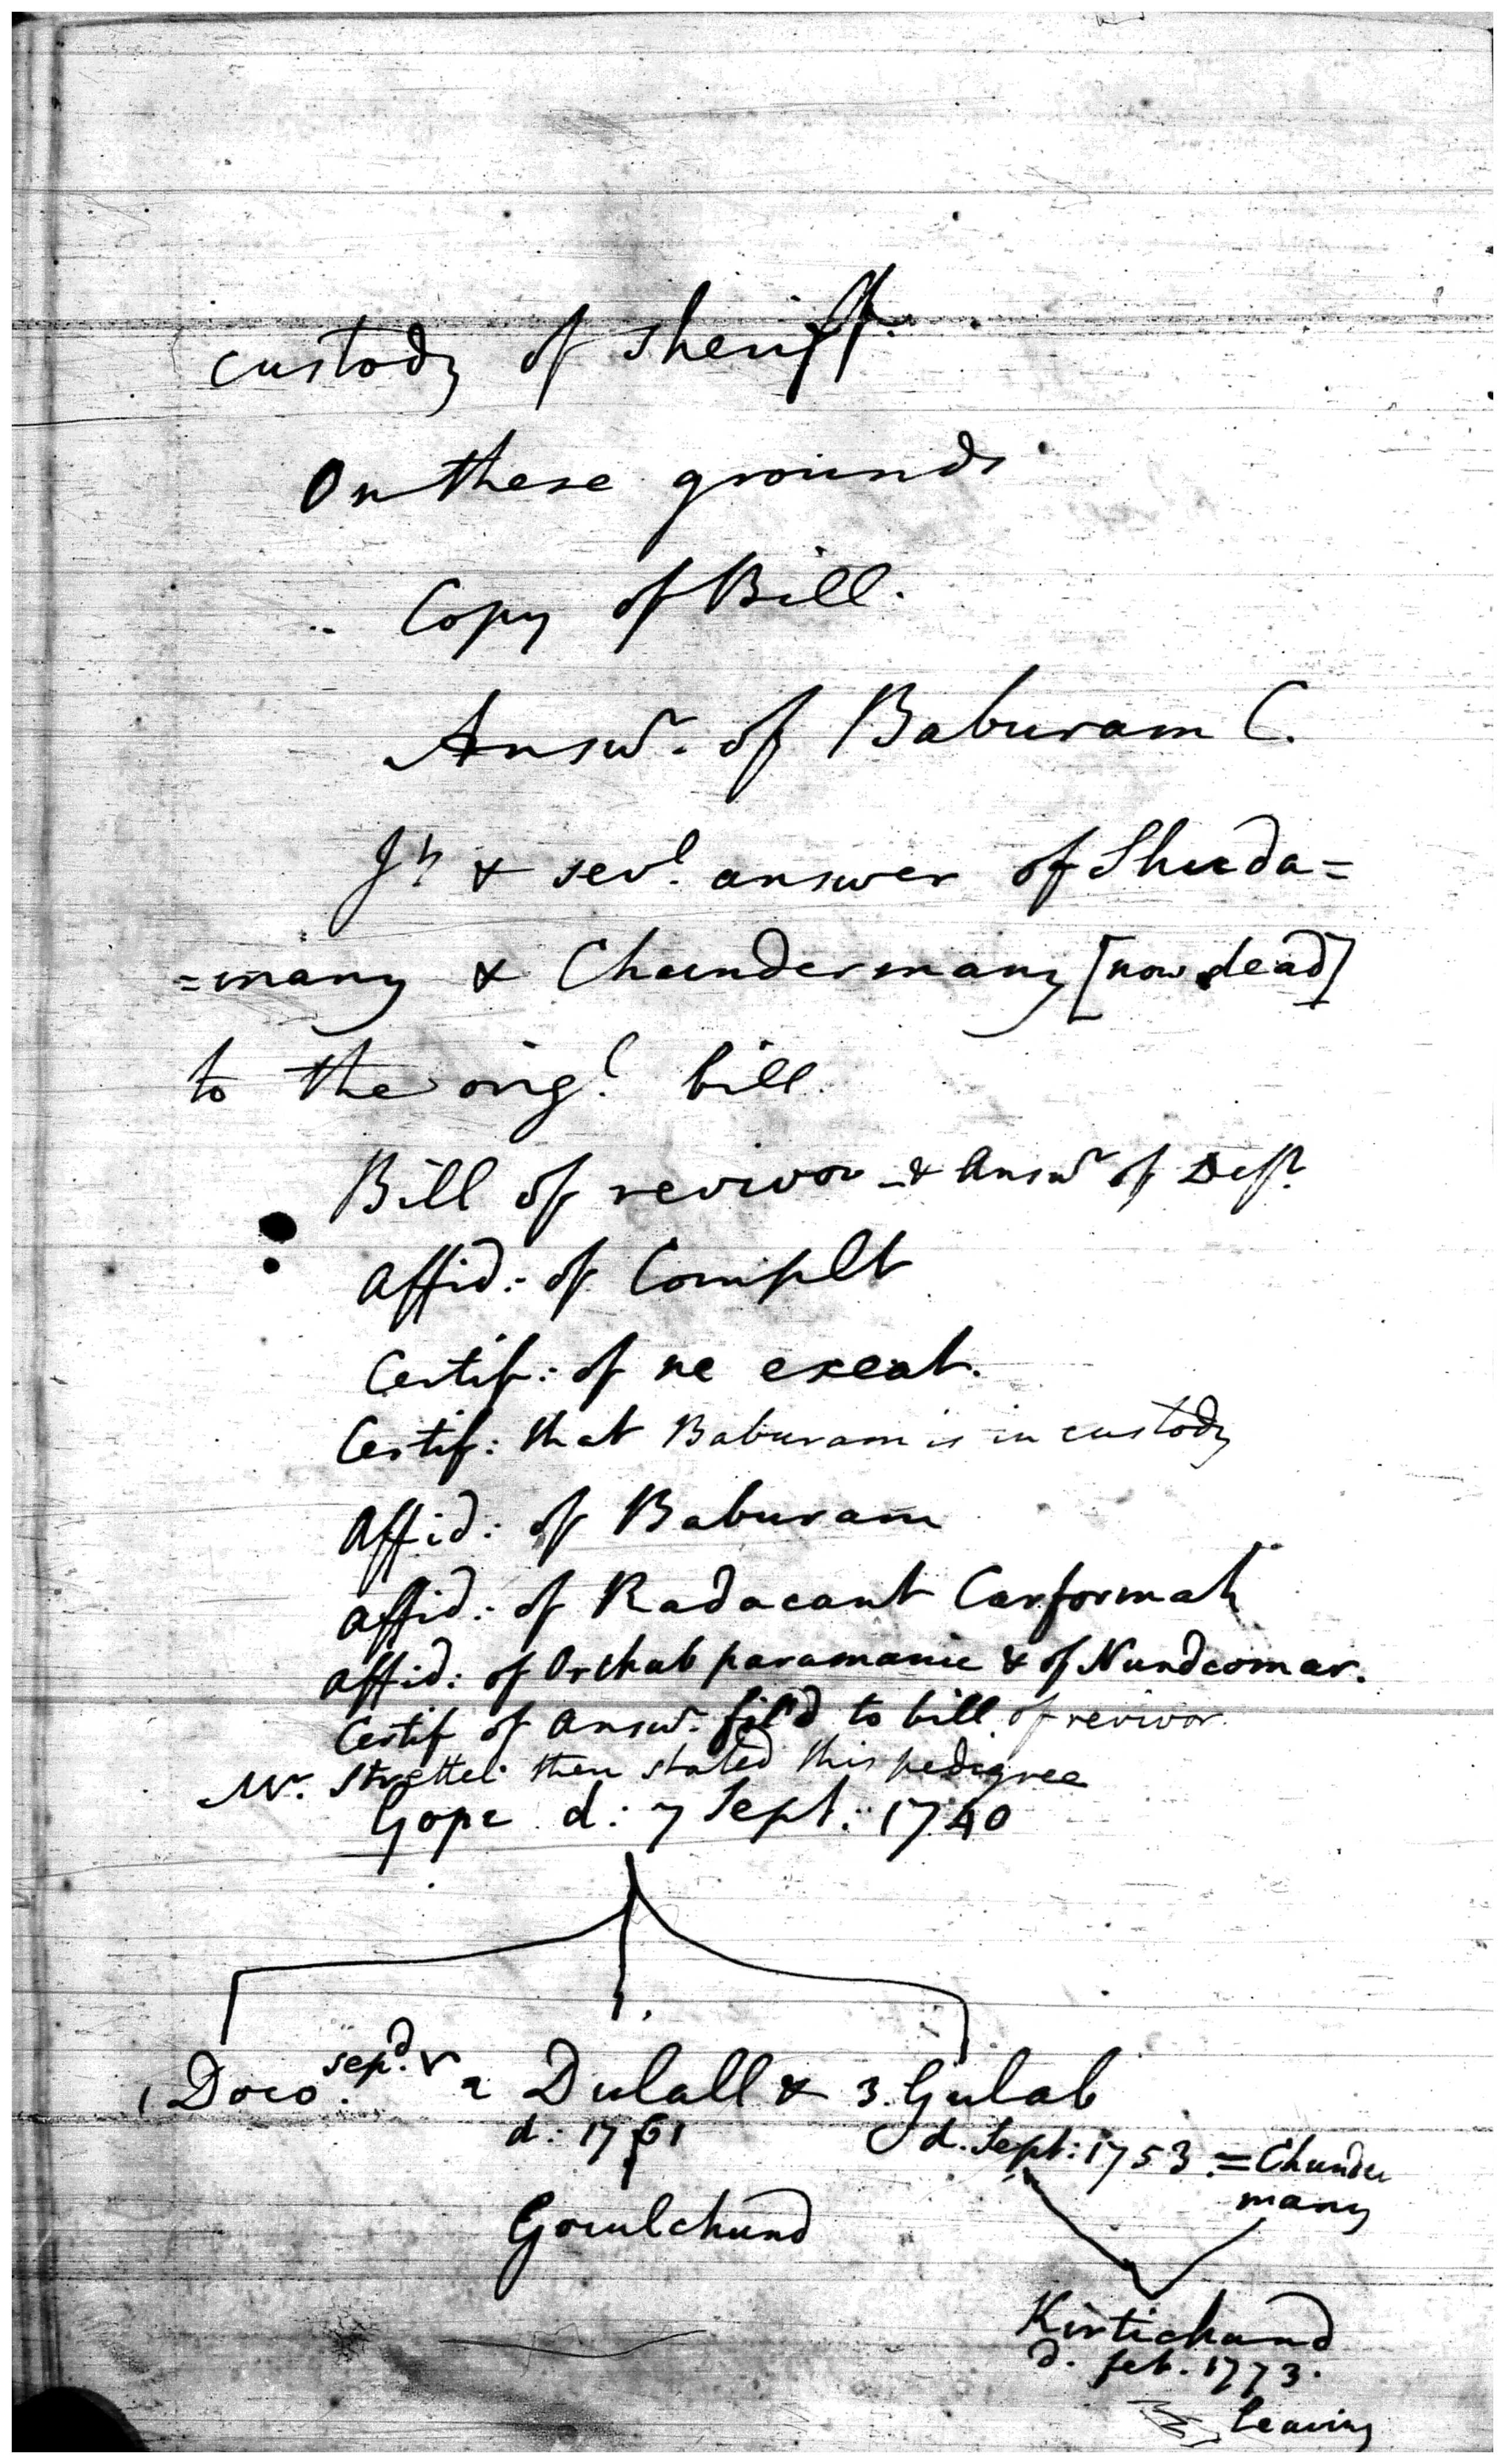 custody of Sheriff.
On these grounds
Copy of Bill.
Answ.r of Baburam C.
Jt. & sev.l answer of Shuda=
=many & Chundermany [now dead]
to the orig.l bill.
Bill of revivor & Answ.r of Deft.
Affid: of Complt
Certif: of ne exeat.
Certif: that Baburam is in custody
Affid: of Baburam
Affid: of Radacant Carformah
Affid: of Orchab paramanic & of Nundcomar.
Certif of Answ.r fil'd to bill of revivor.
Mr. Strettel then stated this pedigree
Gope d: 7 Sept: 1740
1 Doco. sep.d 2 Dulall & 3. Gulab
d: 1761 d. Sept: 1753 = Chunder
many
Goculchund
Kirtichand
d. feb. 1773.
leaving